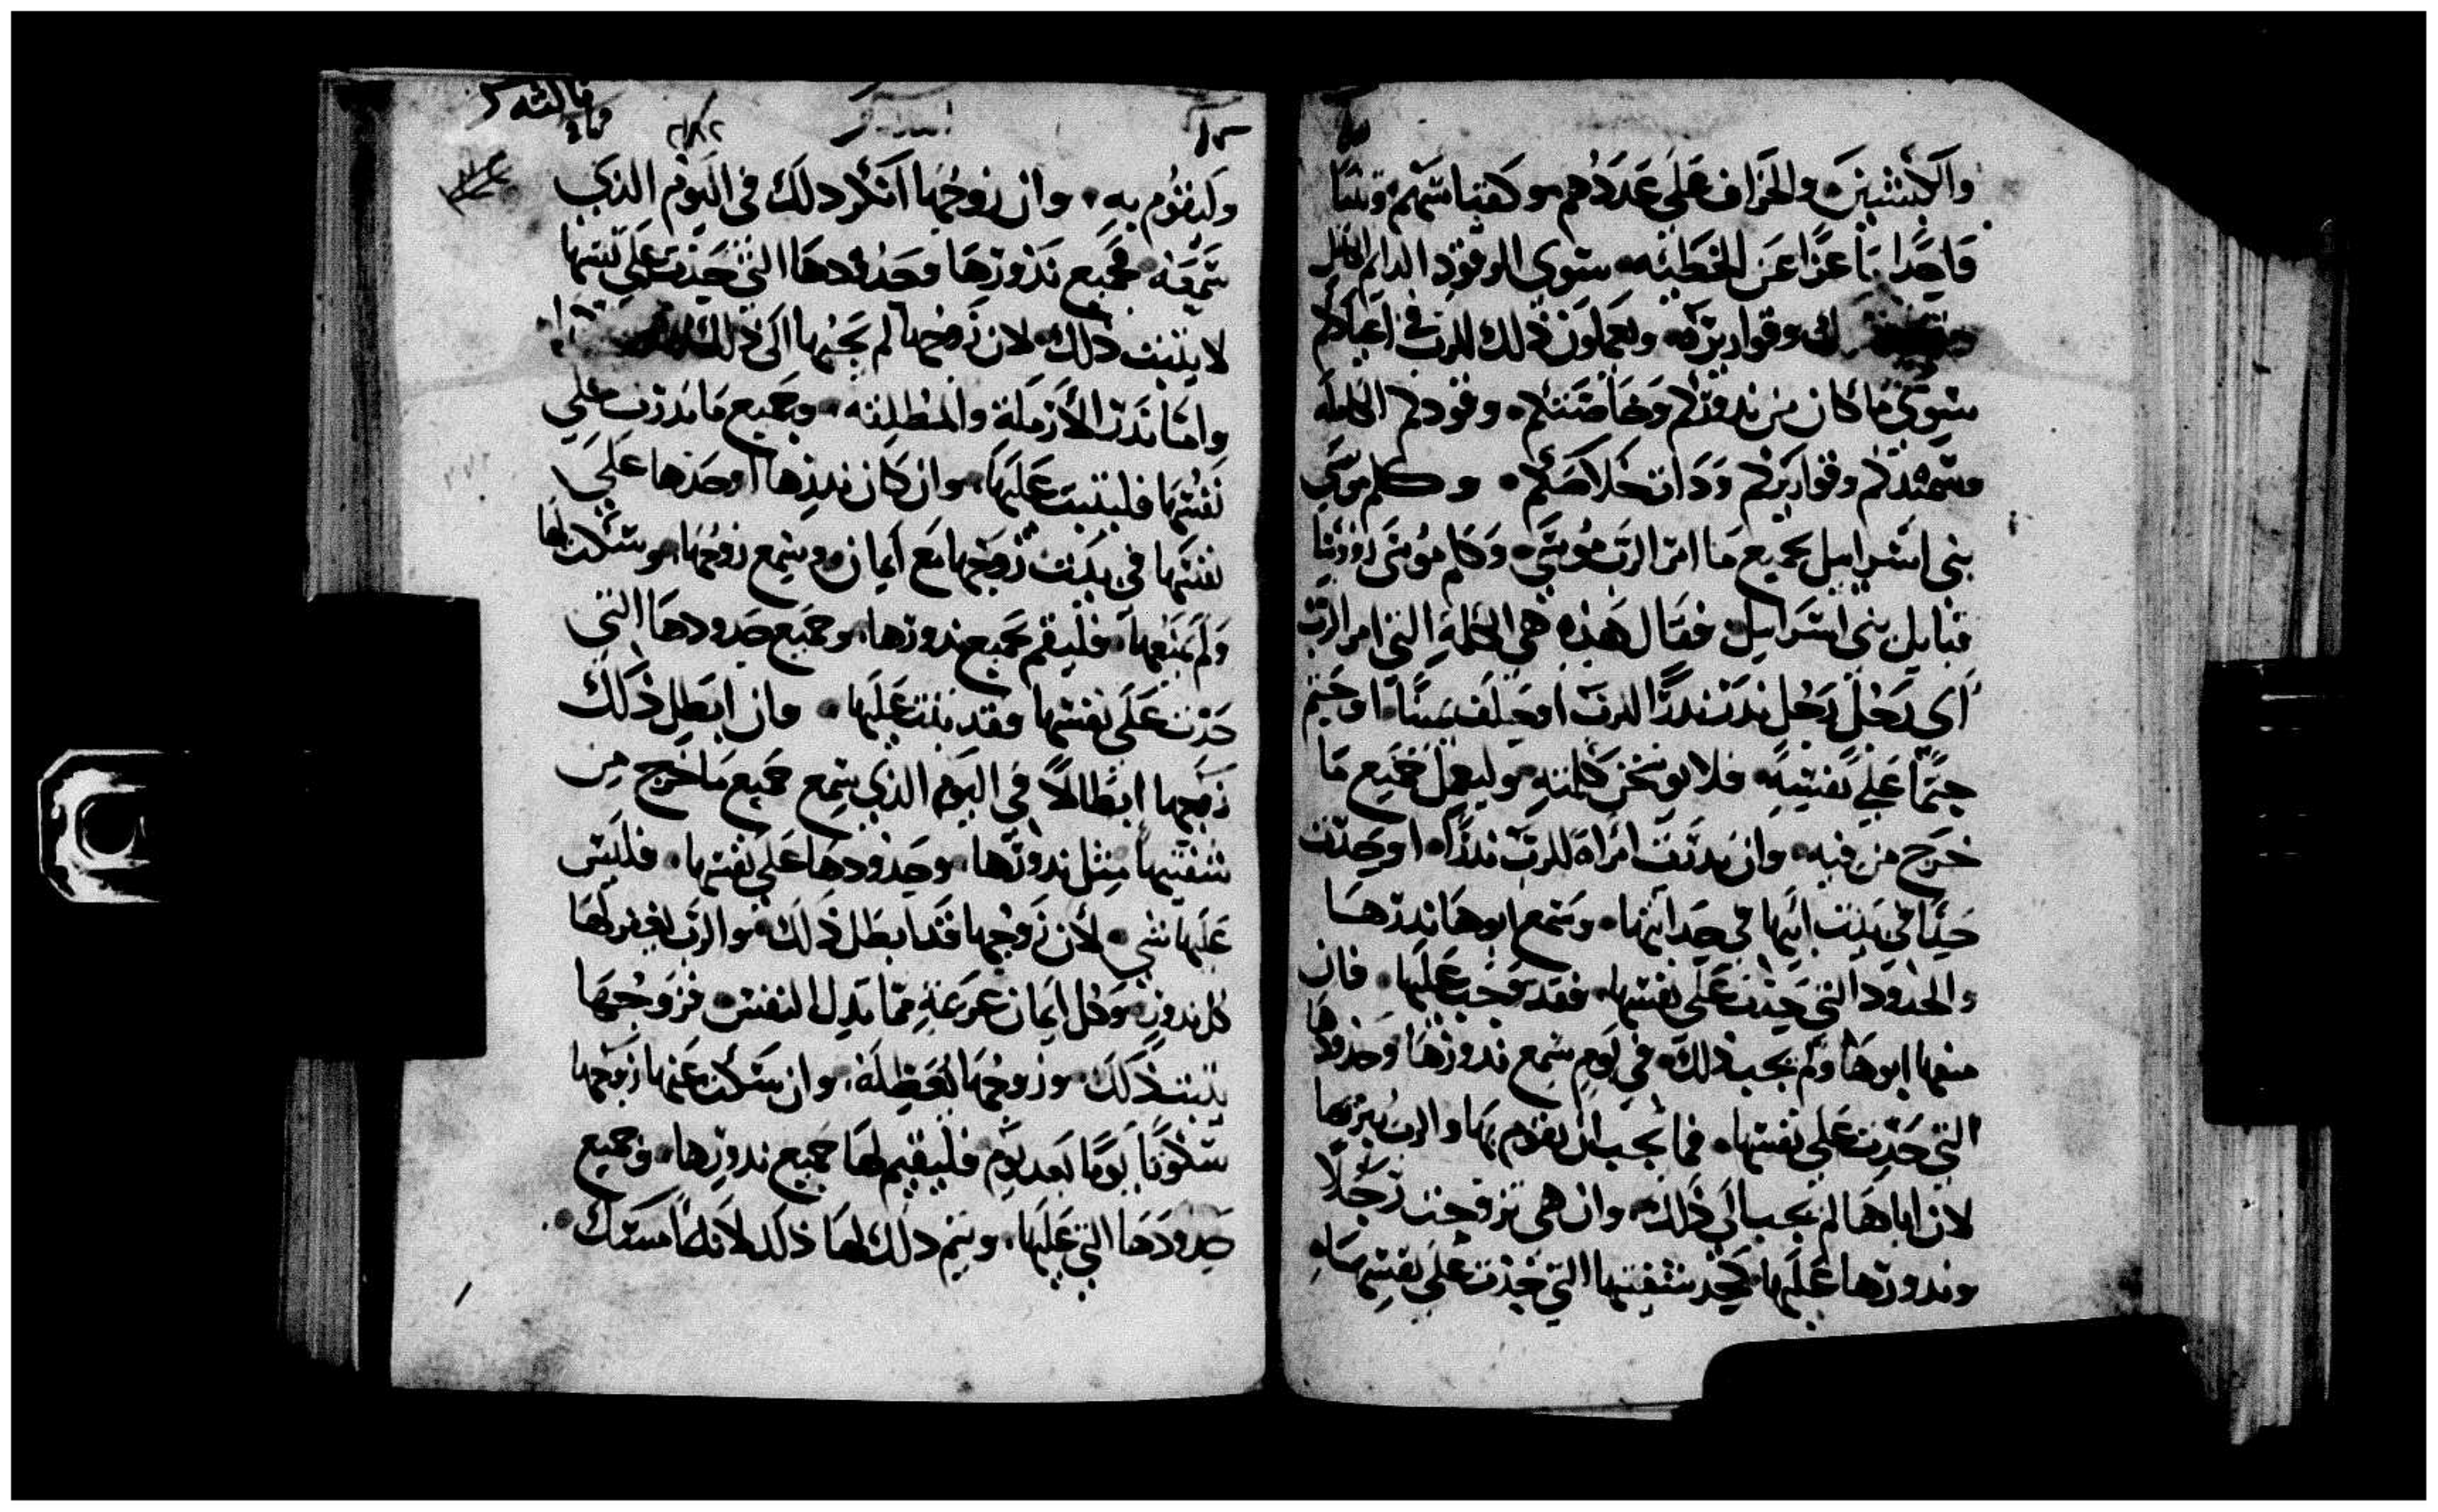 والكبشين والخراف على عددهم وكقياسهم وتيسا
واحدا ماعزا عن الخطيه سوى الوقود الدايم الكامل
وقواريره ويعملون ذلك للرب في اعيادكم
سوى ما كان من ندوركم وخاصتكم وقودكم الكامله
وسمندكم وقواريركم وذات خلاصكم وكلم موسى
بني اسرايل بجميع ما امر الرب موسى وكلم موسى روؤسا
قبايل بني اسرايل فقال هذه هي الكلمة التي امر الرب
اى رجل رجل ندر ندرًا للرب او حلف يمينًا او حتم
حتمًا على نفسه فلا يوخر كلمته وليعمل جميع ما
خرج من فيه وان ندرت امراة للرب ندرًا او حدت
حدًا في بيت ابيها في حداثتها وسمع ابوها ندرها
والحدود التي حدت على نفسها فقد وجب عليها فان
منعها ابوها ولم يجب ذلك في يوم سمع ندورها وحدودها
التي حدت على نفسها فما يجب ان يقوم بها والرب يبريها
لان اباها لم يجب الى ذلك وان هي تزوجت رجلًا
وندورها عليها كحد شفتيها التي حدت على نفسها
وليقوم به وان زوجها انكر ذلك في اليوم الذي
سمعه فجميع ندورها وحدودها التي حدت على نفسها
لا يثبت ذلك لان زوجها لم يجبها الى ذلك
واما ندر الارملة والمطلقه وجميع ما ندرت على
نفسها فليثبت عليها وان كان ندرها او حدها على
نفسها في بيت زوجها مع ايمان وسمع زوجها وسكت لها
ولم يمنعها فليقم جميع ندورها وجميع حدودها التي
حدت على نفسها وقد ثبتت عليها وان ابطل ذلك
زوجها ابطالاً في اليوم الذي سمع جميع ما خرج من
شفتيها مثل ندورها وحدودها على نفسها فليس
عليها شي لان زوجها قد ابطل ذلك والرب يغفر لها
كل ندور وكل ايمان عزيمة مما تدل النفس فزوجها
يثبت ذلك وزوجها يعطله وان سكت عنها زوجها
سكوتًا يومًا بعد يوم فليقيم لها جميع ندورها وجميع
حدودها التي عليها ويتم ذلك لها ذلك لانه امسك